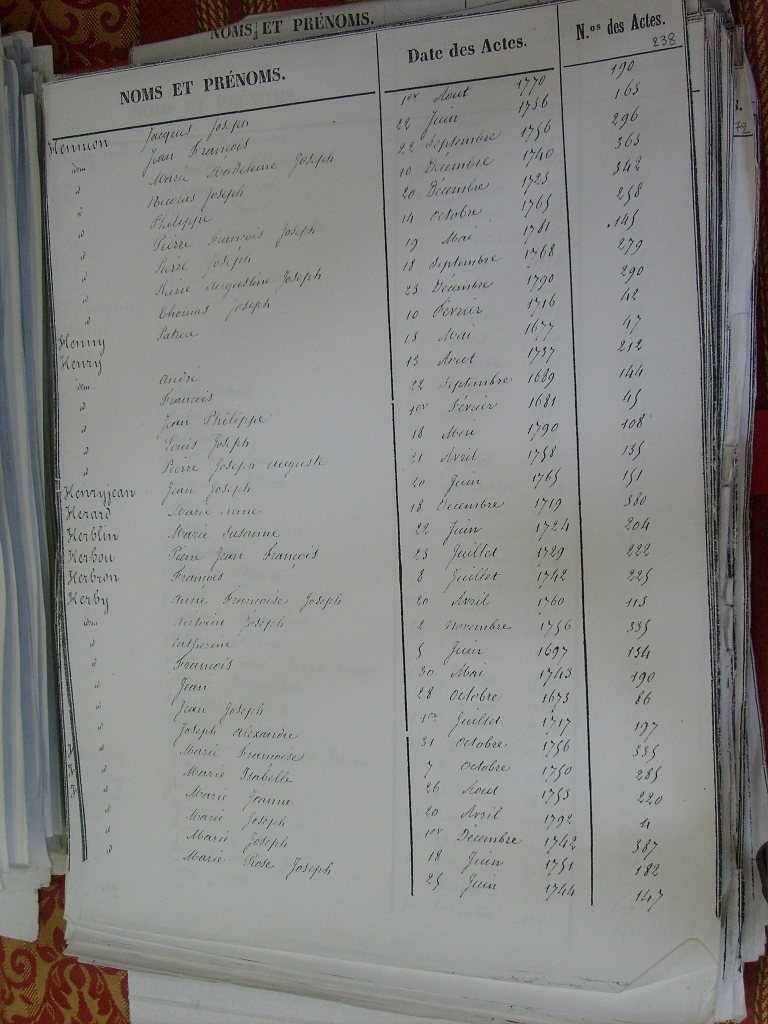 NOMS ET PRÉNOMS.
NOMS ET PRÉNOMS. Date des Actes. N.os des Actes.
238
Hennion Jacques Joseph 1er Aout 1770 190
idem Jean François 22 Juin 1736 163
d Marie Madeleine Joseph 22 Septembre 1756 296
d Nicolas Joseph 10 Décembre 1740 363
d Philippe 20 Décembre 1723 342
d Pierre François Joseph 14 Octobre 1765 258
d Pierre Joseph 19 Mai 1781 145
d Augustine Joseph 18 Septembre 1768 279
d Thomas Joseph 23 Décembre 1790 290
Henny Patrice 10 Février 1716 42
Henry 13 Mai 1677 47
idem André 13 Aout 1737 212
d François 22 Septembre 1689 144
d Jean Philippe 1er Février 1681 45
d Louis Joseph 18 Mai 1790 108
d Pierre Joseph Auguste 21 Avril 1758 135
Henryjean Jean Joseph 20 Juin 1765 151
Herard Marie Anne 18 Decembre 1719 380
Herblin Marie Susanne 22 Juin 1724 204
Herbou Pierre Jean François 23 Juillet 1729 222
Herbron François 8 Juillet 1742 225
Herby Anne Françoise Joseph 20 Avril 1760 113
idem Antoine Joseph 2 Novembre 1756 335
d Catherine 5 Juin 1697 134
d François 30 Mai 1743 190
d Jean 28 Octobre 1673 86
d Jean Joseph 1er Juillet 1717 197
d Joseph Alexandre 31 Octobre 1756 335
d Marie Françoise 7 Octobre 1750 285
d Marie Isabelle 26 Aout 1753 220
d Marie Jeanne 20 Avril 1792 11
d Marie Joseph 1er Decembre 1742 387
d Marie Joseph 18 Juin 1751 182
d Marie Rose Joseph 25 Juin 1744 147